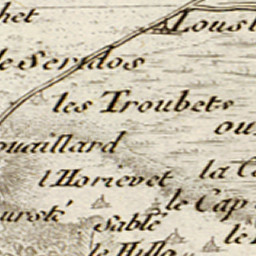 het
Loust
le Seridos
les Troubets
ou
ouaillard
l'Horievet
la C
le Cap
ursté
Sablé
le
le Hillo